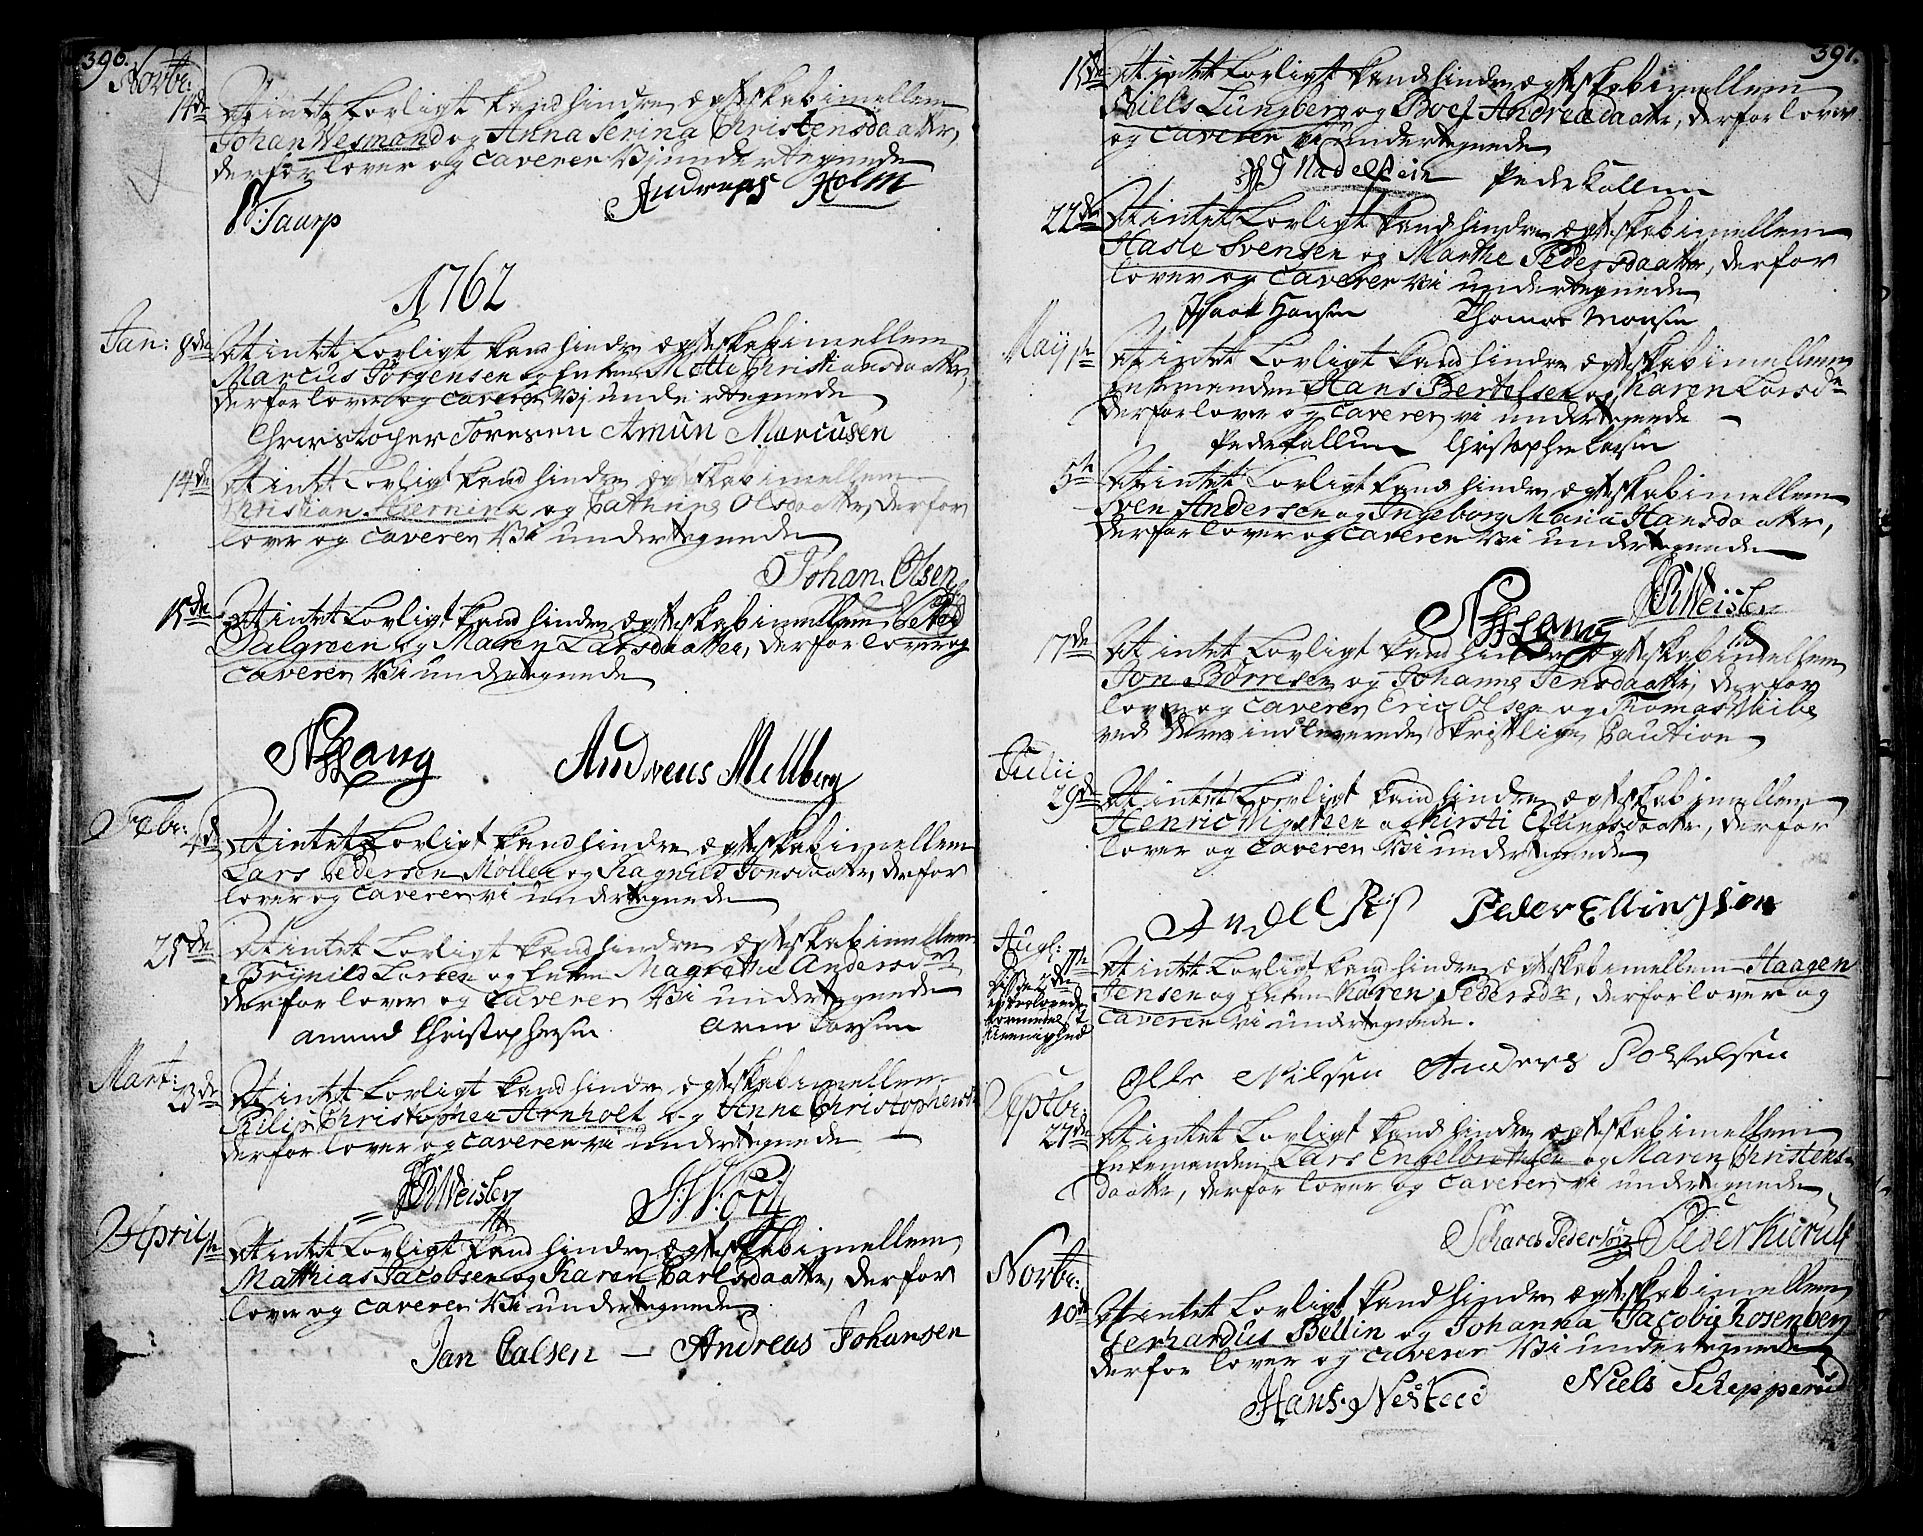 396.
Novbr:
14de At intet Lovligt kand hindre ægteskab imellem
Johan Wesmand og Anna Serina Christensdaatter,
derfor lover og caverer Vj undertegnede
P: Taurp Andreas Holm
1762
Jan: 8de At intet Lovligt kand hindre ægteskab imellem
Marcus Jörgensen og Enken Mette Christiansdaatter,
derfor lover og caverer Vj undertegnede
Christopher Toresen Amun Marcusen
14de At intet Lovligt kand hindre ægteskab imellem
Christian og Cathrine Olsdaatter, derfor
lover og caverer Vi undertegnede
Johan Olsen
15de At intet Lovligt kand hindre ægteskab imellem Peter
Dalgreen og Maren Larsdaatter, derfor lover og
caverer Vi undertegnede
Andreas Mellberg
Febr: At intet Lovligt kand hindre ægteskab imellem
Lars Pedersen Møller og Ragnild Jonsdaatter, derfor
lover og caverer vi undertegnede
25de At intet Lovligt kand hindre ægteskab imellem
Brynild Larsen og Enken Magrethe Andersdr
derfor lover og caverer Vi undertegnede
Amund Christophersen Arne Larsen
Mart:
23de At intet Lovligt kand hindre ægteskab imellem
Philip Christopher Arnholt og Anne Christophersdr
derfor lover og caverer vi undertegnede
Weisler
April 1te At intet Lovligt kand hindre ægteskab imellem
Matthias Jacobsen og Karen Carlsdaatter, derfor
lover og caverer Vi undertegnede
Jan Calsen — Andreas Johansen
397.
15de At intet Lovligt kand hindre ægteskab imellem
Niels Lungberg og Boel Andreædaatter, derfor lover
og caverer vi undertegnede
Nadelstein Peder Kallum
22de At intet Lovligt kand hindre ægteskab imellem
Hasle Svensen og Marthe Pedersdaatter, derfor
lover og caverer Vi undertegnede
Isaak Hansen Thomas Monsen
Maij 1te At intet Lovligt kand hindre ægteskab imellem
Enkemanden Hans Bertelsen og Karen Larsdr
derfor lover og caverer vi undertegnede
Peder Kallum Christopher Larsen
5te At intet Lovligt kand hindre ægteskab imellem
Sven Andersen og Ingeborg Maria Hansdaatter,
derfor lover og caverer Vi undertegnede
Weisler
17de At intet Lovligt kand hindre ægteskab imellem
Jon Börresen og Johanne Jensdaatter, derfor
lover og caverer Eric Olsen og Thomas Vibe
ved deres indleverede Skriftlige Caution
Julii
29de At intet Lovligt kand hindre ægteskab imellem
Henric Vigsteen og Kirsti Ellingsdaatter, derfor
lover og caverer Vi undertegnede
Peder Ellingson
Augl: 11te At intet Lovligt kand hindre ægteskab imellem Haagen
Jensen og Enken Karen Pedersdr, derfor lover og
caverer vi undertegnede.
Olle Nilsen Anders Povelsen
Septbr:
27de At intet Lovligt kand hindre ægteskab imellem
Enkemanden Lars Engelbretsen og Maren Christens-
daatter, derfor lover og caverer vi undertegnede
Pedersön Peder Kurul
Novbr:
10de At intet Lovligt kand hindre ægteskab imellem
Gerhardus Bellin og Johanna Jacobie Rosenberg
derfor lover og caverer Vi undertegnede
Hans Nested Niels Schepperud